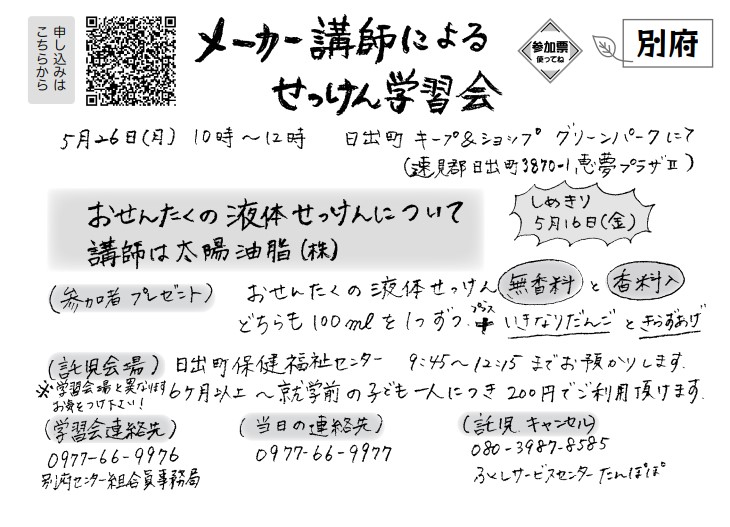 申し込みは
こちらから
メーカー講師による
せっけん学習会
参加票
使ってね
別府
5月26日(月) 10時〜12時 日出町 キープ&ショップ グリーンパークにて
(速見郡日出町3870-1,恵夢プラザⅡ)
おせんたくの液体せっけんについて
講師は太陽油脂(株)
しめきり
5月16日(金)
(参加者プレゼント) おせんたくの液体せっけん 無香料 と 香料入
どちらも100mlを1つずつ プラス + いきなりだんご と きらずあげ
(託児会場) 日出町保健福祉センター 9:45〜12:15までお預かりします.
※学習会場と異なります
お気をつけ下さい!
6ヶ月以上〜就学前の子ども一人につき200円でご利用頂けます.
(学習会連絡先)
0977-66-9976
別府センター組合員事務局
(当日の連絡先)
0977-66-9977
(託児.キャンセル)
080-3987-8585
ふくしサービスセンターたんぽぽ